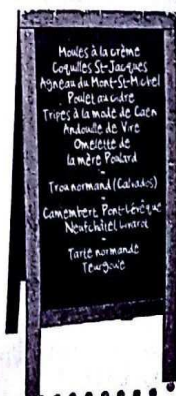 Moules à la crème
Coquilles St-Jacques
Agneau du Mont-St-Michel
Poulet au cidre
Tripes à la mode de Caen
Andouille de Vire
Omelette de
la mère Poulard
~
Trou normand (Calvados)
~
Camembert Pont-Lévêque
Neufchâtel Livarot
~
Tarte normande
Teurgoule